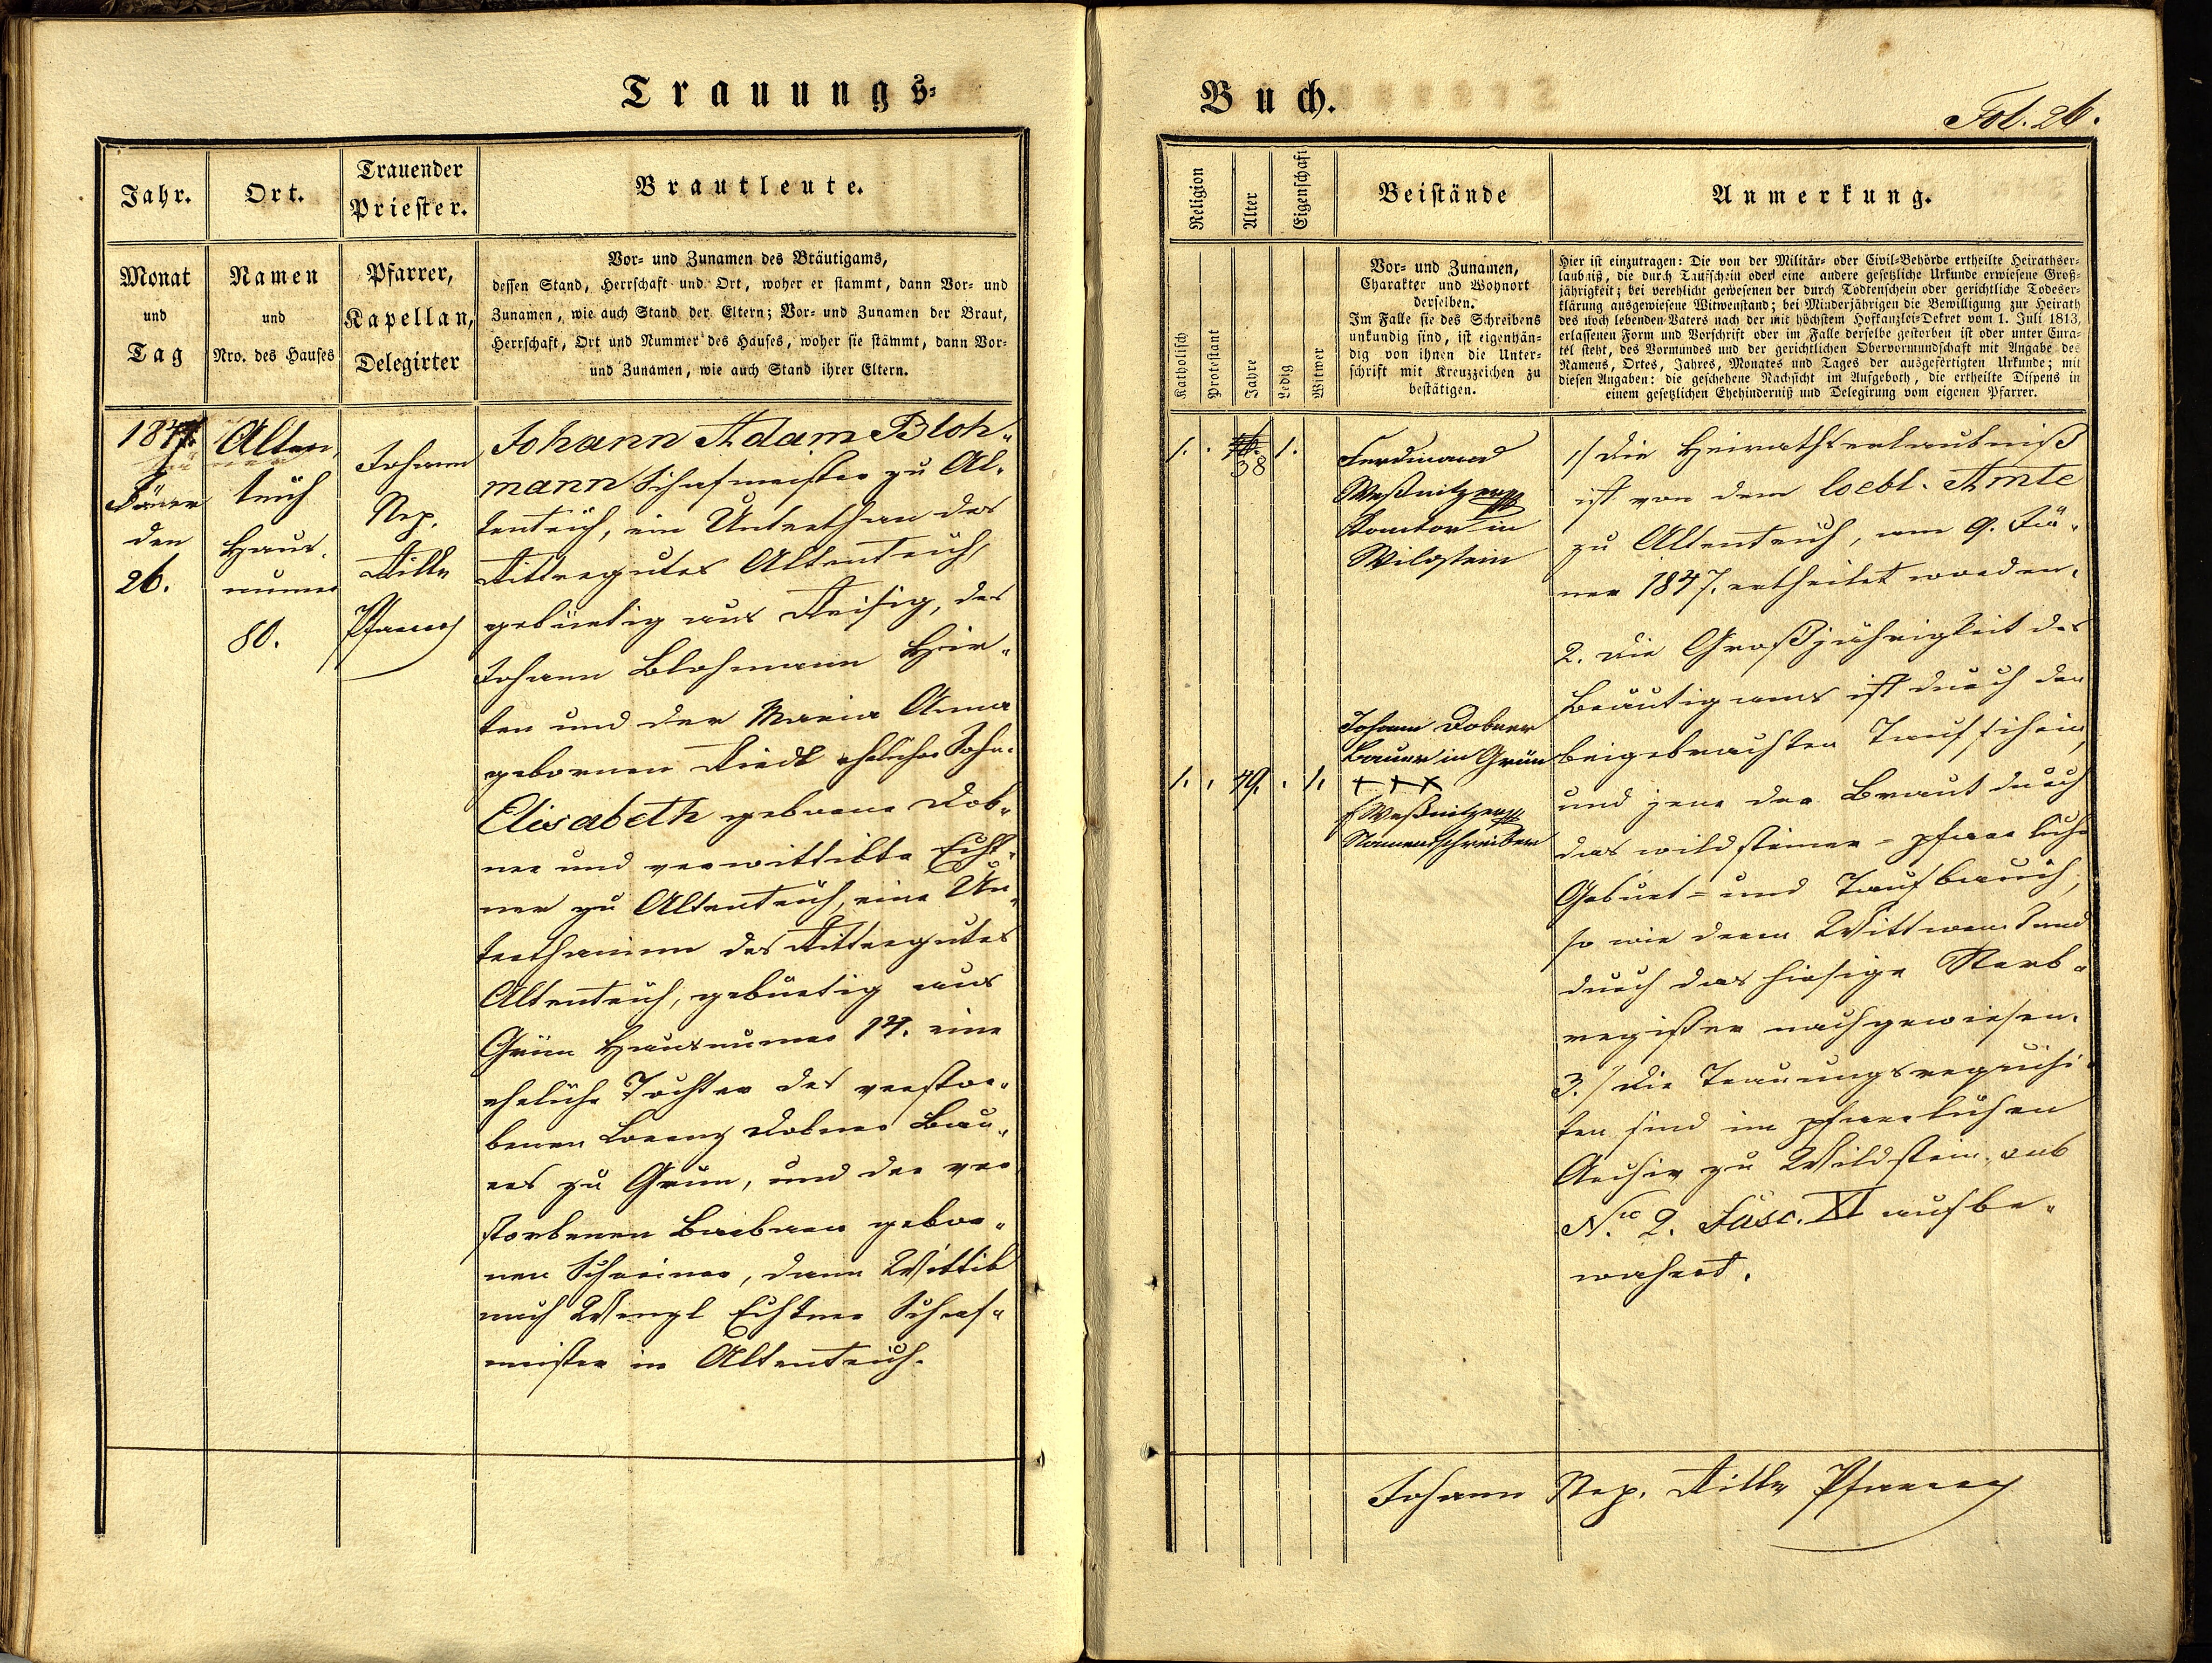 Trauungs=
Jahr.
Ort.
Trauender
Priester.
Brautleute.
Monat
und
Tag
Namen
und
Nro. des Hauses
Pfarrer,
Kapellan,
Delegirter
Vor- und Zunamen des Bräutigams,
dessen Stand, Herrschaft und Ort, woher er stammt, dann Vor- und
Zunamen, wie auch Stand der Eltern; Vor- und Zunamen der Braut,
Herrschaft, Ort und Nummer des Hauses, woher sie stammt, dann Vor-
und Zunamen, wie auch Stand ihrer Eltern.
1847.
Jäner
den
26.
Alten,
teich
Haus.
numer
80.
Johann
Nep.
Rille
Pfarrer
Johann Adam Bloh-
mann Schafmeister zu Al-
tenteich, ein Unterthan des
Rittergutes Altenteich,
gebürtig aus Reisig, des
Johann Blohmann Hir-
ten und der Maria Anna
gebornen Riedl ehelicher Sohn.
Elisabeth geborne Dob-
ner und verwittibte Eicht-
ner zu Altenteich, eine Un-
terthaninn des Rittergutes
Altenteich, gebürtig aus
Grün Hausnumer 14. eine
eheliche Tochter des verstor-
benen Lorenz Dobner Bau-
ers zu Grün, und der ver
storbenen Barbara gebor-
nen Schreiner, dann Wittib
nach Wenzl Eichtner Schaf-
meister in Altenteich.
Buch.
Fol. 26.
Religion
Alter
Eigenschaft
Beistände
Anmerkung.
Katholisch
Protestant
Jahre
Ledig
Witwer
Vor- und Zunamen,
Charakter und Wohnort
derselben.
Im Falle sie des Schreibens
unkundig sind, ist eigenhän-
dig von ihnen die Unter-
schrift mit Kreuzzeichen zu
bestätigen.
Hier ist einzutragen: Die von der Militär- oder Civil-Behörde ertheilte Heirathser-
laubniß, die durch Taufschein oder eine andere gesetzliche Urkunde erwiesene Groß-
jährigkeit; bei verehlicht gewesenen der durch Todtenschein oder gerichtliche Todeser-
klärung ausgewiesene Witwenstand; bei Minderjährigen die Bewilligung zur Heirath
des noch lebenden Vaters nach der mit höchstem Hofkanzlei-Dekret vom 1. Juli 1813,
erlassenen Form und Vorschrift oder im Falle derselbe gestorben ist oder unter Cura-
tel steht, des Vormundes und der gerichtlichen Obervormundschaft mit Angabe des
Namens, Ortes, Jahres, Monates und Tages der ausgefertigten Urkunde; mit
diesen Angaben: die geschehene Nachsicht im Aufgeboth, die ertheilte Dispens in
einem gesetzlichen Ehehinderniß und Delegirung vom eigenen Pfarrer.
1. . 38 1.
Ferdinand
Weßnitzer
Kantor in
Wildstein
Johann Dobner
Bauer in Grün
1. . 49. . 1.
+++
Weßnitzer
Namensschreiber
1/ Die Heirathserlaubniß
ist von dem loebl. Amte
zu Altenteich, am 9. Jä-
ner 1847. ertheilet worden.
2. Die Großjährigkeit des
Bräutigams ist durch den
beigebrachten Taufschein,
und jene der Braut durch
das wildsteiner-pfarrliche
Geburt- und Taufbuch,
so wie deren Wittwenstand
durch das hiesige Sterb-
register nachgewiesen.
3./ Die Trauungsrequisi-
ten sind im pfarrlichen
Archiv zu Wildstein sub
Nro 2. Fasc. XI aufbe-
wahrt.
Johann Nep. Rille Pfarrer